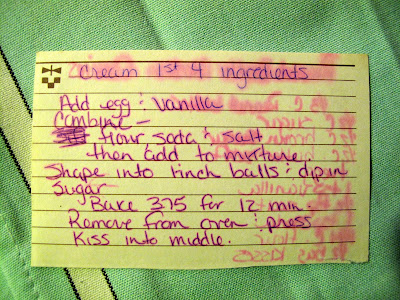 Cream 1st 4 ingredients
Add egg & vanilla
Combine –
flour soda & salt
then add to mixture.
Shape into 1 inch balls & dip in
sugar
Bake 375 for 12 min.
Remove from oven & press
Kiss into middle.